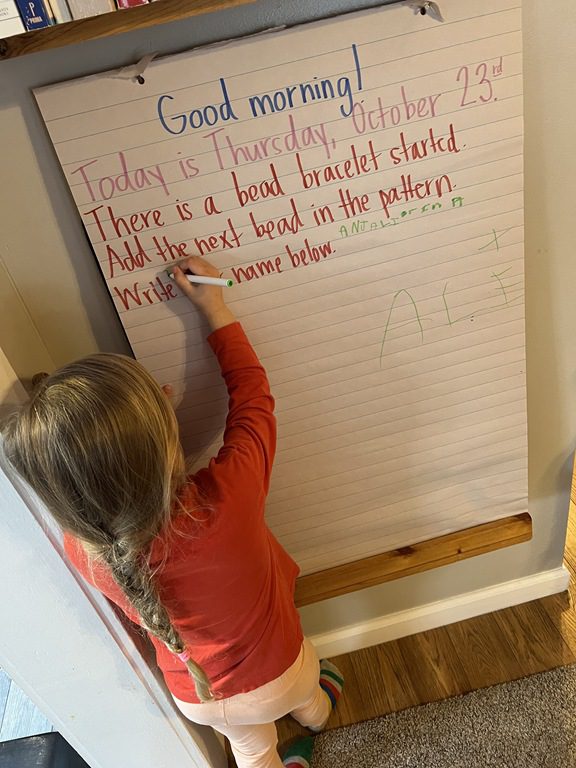 Good morning!
Today is Thursday, October 23rd.
There is a bead bracelet started.
Add the next bead in the pattern.
Write name below.
A L I